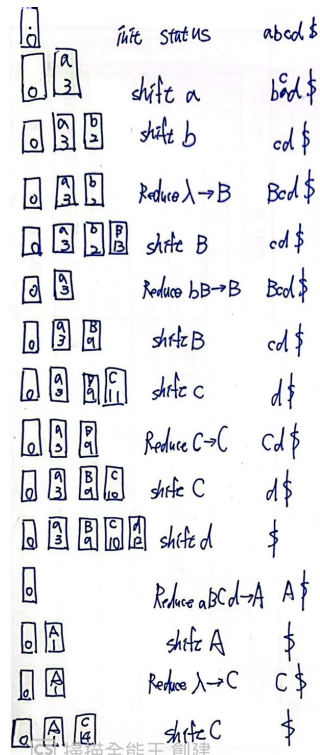 0 init status abcd $
0 a 3 shift a bcd $
0 a 3 b 2 shift b cd $
0 a 3 b 2 Reduce λ→B Bcd $
0 a 3 b 2 B 13 shift B cd $
0 a 3 Reduce bB→B Bcd $
0 a 3 B 9 shift B cd $
0 a 3 B 9 C 11 shift c d $
0 a 3 B 9 Reduce C→C Cd $
0 a 3 B 9 C 10 shift C d $
0 a 3 B 9 C 10 d 12 shift d $
0 Reduce aBCd→A A $
0 A 1 shift A $
0 A 1 Reduce λ→C C $
0 A 1 C 14 shift C $
CS 掃描全能王 創建